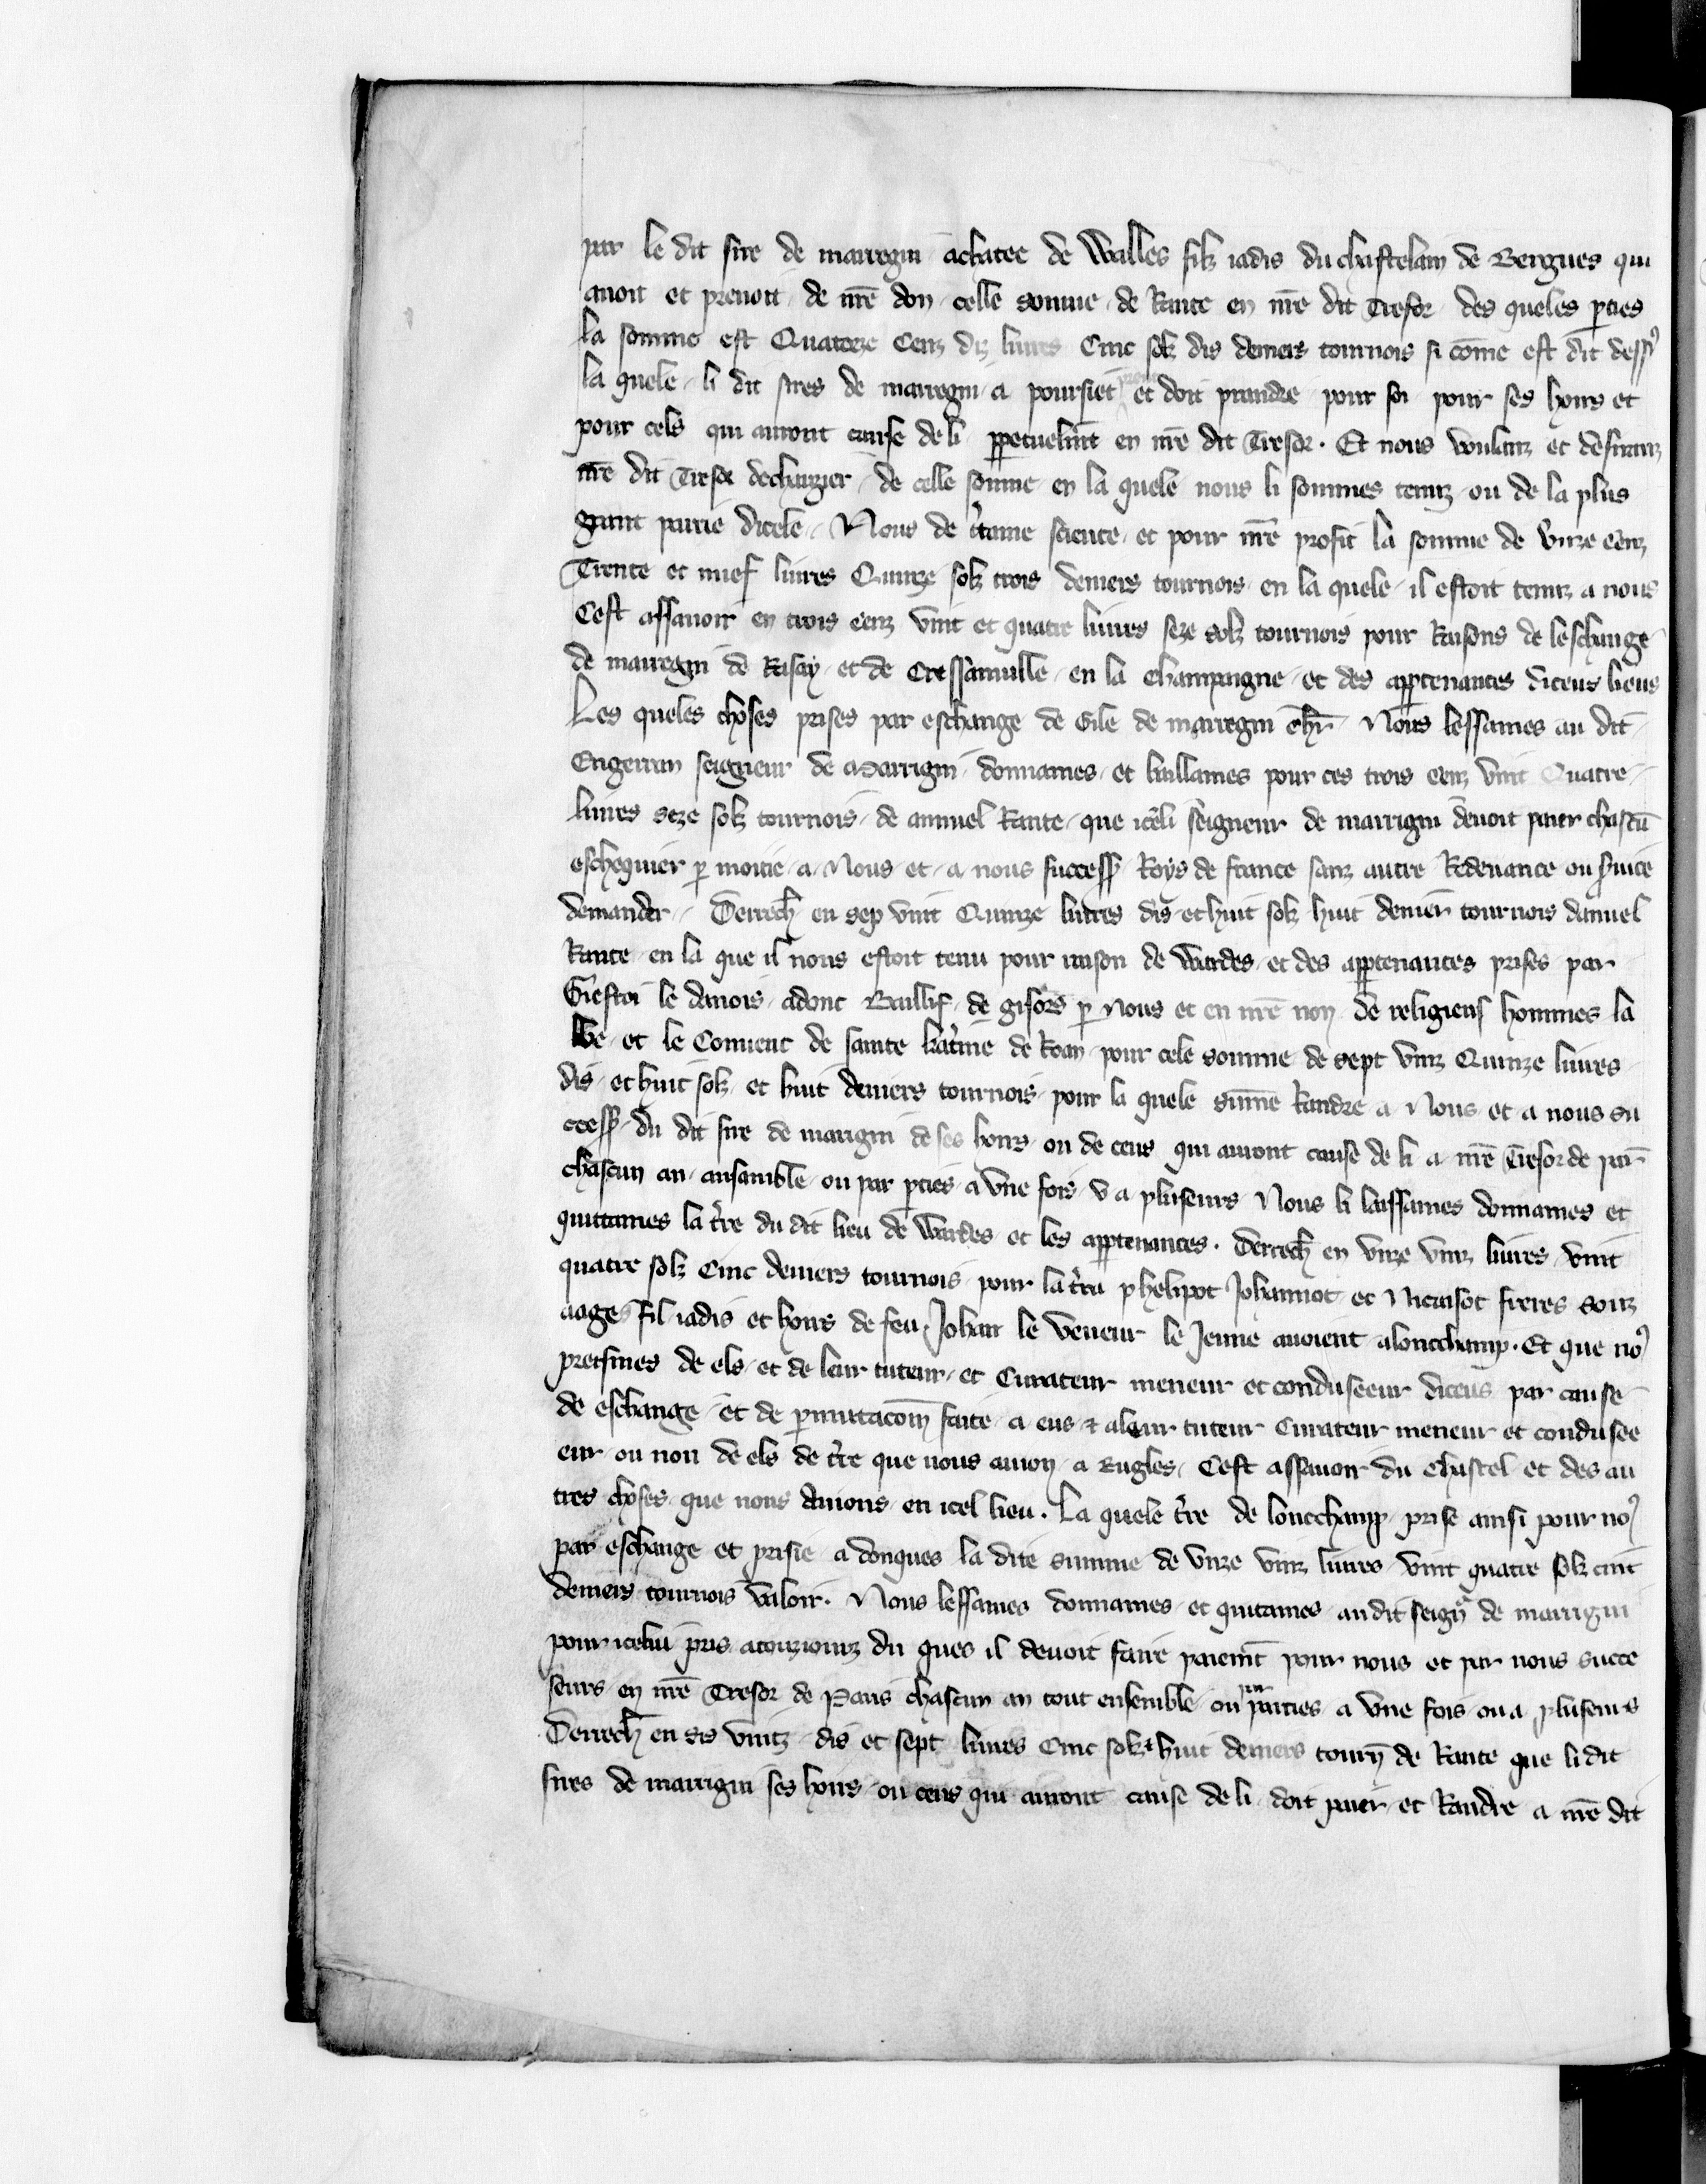 par le dit sire de marregni achatee de Walles filz iadis du chastelain de Bergues qui
auoit et prenoit de nr̄e don celle somme de Rante en nr̄e dit Tresor des queles ꝑties
la somme est Quatorze Cenz diz liures Cinc solz dis deniers tournois si cōme est dit dessꝰ
la quele li dit sires de marregni a poursiet et doit prandre pour soi pour ses hoirs et
pour cels qui auront cause de li ꝑpetuelmēt en nr̄e dit Tresor. Et nous voulanz et desiranz
nr̄e dit Tresor dechargier de celle somme en la quele nous li sommes tenuz ou de la plus
grant partie dicele. Nous de c̾taine science et pour nr̄e profit la somme de vnze cenz
Trente et nuef liures Quinze solz trois deniers tournois en la quele il estoit tenuz a nous
Cest assauoir en trois cenz vint et quatre liures seze solz tournois pour Raisons de leschange
de marregni de Rosay et de Cressanuille en la Champaigne et des apꝑtenances diceus lieus
Les queles choses prises par eschange de Gile de marregni chr̄ Nous lessames au dit
Engerran seigneur de Marrigni donnames et baillames pour ces trois cenz vint Quatre
liures seze solz tournois de annuel Rante que iceli seigneur de marrigni deuoit paier chascū
eschequier ꝑ moitie a Nous et a nous success̄ Roys de france sanz autre Redeuance ou s̾uice
demander. Derrech̄ en sep vint Quinze liures dis et huit solz huit denier tournois danuel
Rante en la que il nous estoit tenu pour raison de Wardes et des apꝑtenances prises par
Giefroi le danois adonc Baillif de gisors ꝑ Nous et en nr̄e non de religieus hommes la
bbe et le Conuent de sainte kat̾ine de Roan pour cele somme de sept vinz Quinze liures
dis et huit solz et huit deniers tournois pour la quele sūme Randre a Nous et a nous su
ccess̄ du dit sire de marigni de ses hoirs ou de ceus qui auront cause de li a nr̄e Tresor de par̄
chascun an ansamble ou par ꝑties a vne fois v a pluseurs Nous li laissames donnames et
quittames la t̾re du dit lieu de Wardes et les apꝑtenances. Derrech̄ en vnze vinz liures vint
quatre solz Cinc deniers tournois pour la t̾re que phelipot Johannot et Nicaisot freres souz
aages fil iadis et hoirs de feu Johan le veneur le Jenne auoient a lonc champ. Et que noꝰ
preismes de els et de leur tuteur et Curateur meneur et conduseeur diceus par cause
de eschange et de ꝑmutacōn faite a eus ⁊ a leur tuteur Curateur meneur et condusee
eur ou non de els de t̾re que nous auion a Rugles. Cest assauoir du chastel et des au
tres choses que nous auions en icel lieu. La quele t̾re de loncchamp prise ainsi pour noꝰ
par eschange et prisie adonques la dite summe de vnze vinz liures vint quatre solz cinc
deniers tournois valoir. Nous lessames donnames et quitames audit seigr̄ de marrigni
pour icelui pris atouziourz du ques il deuoit faire paiemēt pour nous et par nous succe
seurs en nr̄e Tresor de Paris chascun an tout ensemble ou par parties a vne fois ou a pluseurs
Derrech̄ en sis vintz dis et sept liures Cinc solz ⁊ huit deniers tourn̄ de Rante que li dit
sires de marrigni ses hoirs ou ceus qui auront cause de li doit paier et Randre a nr̄e dit